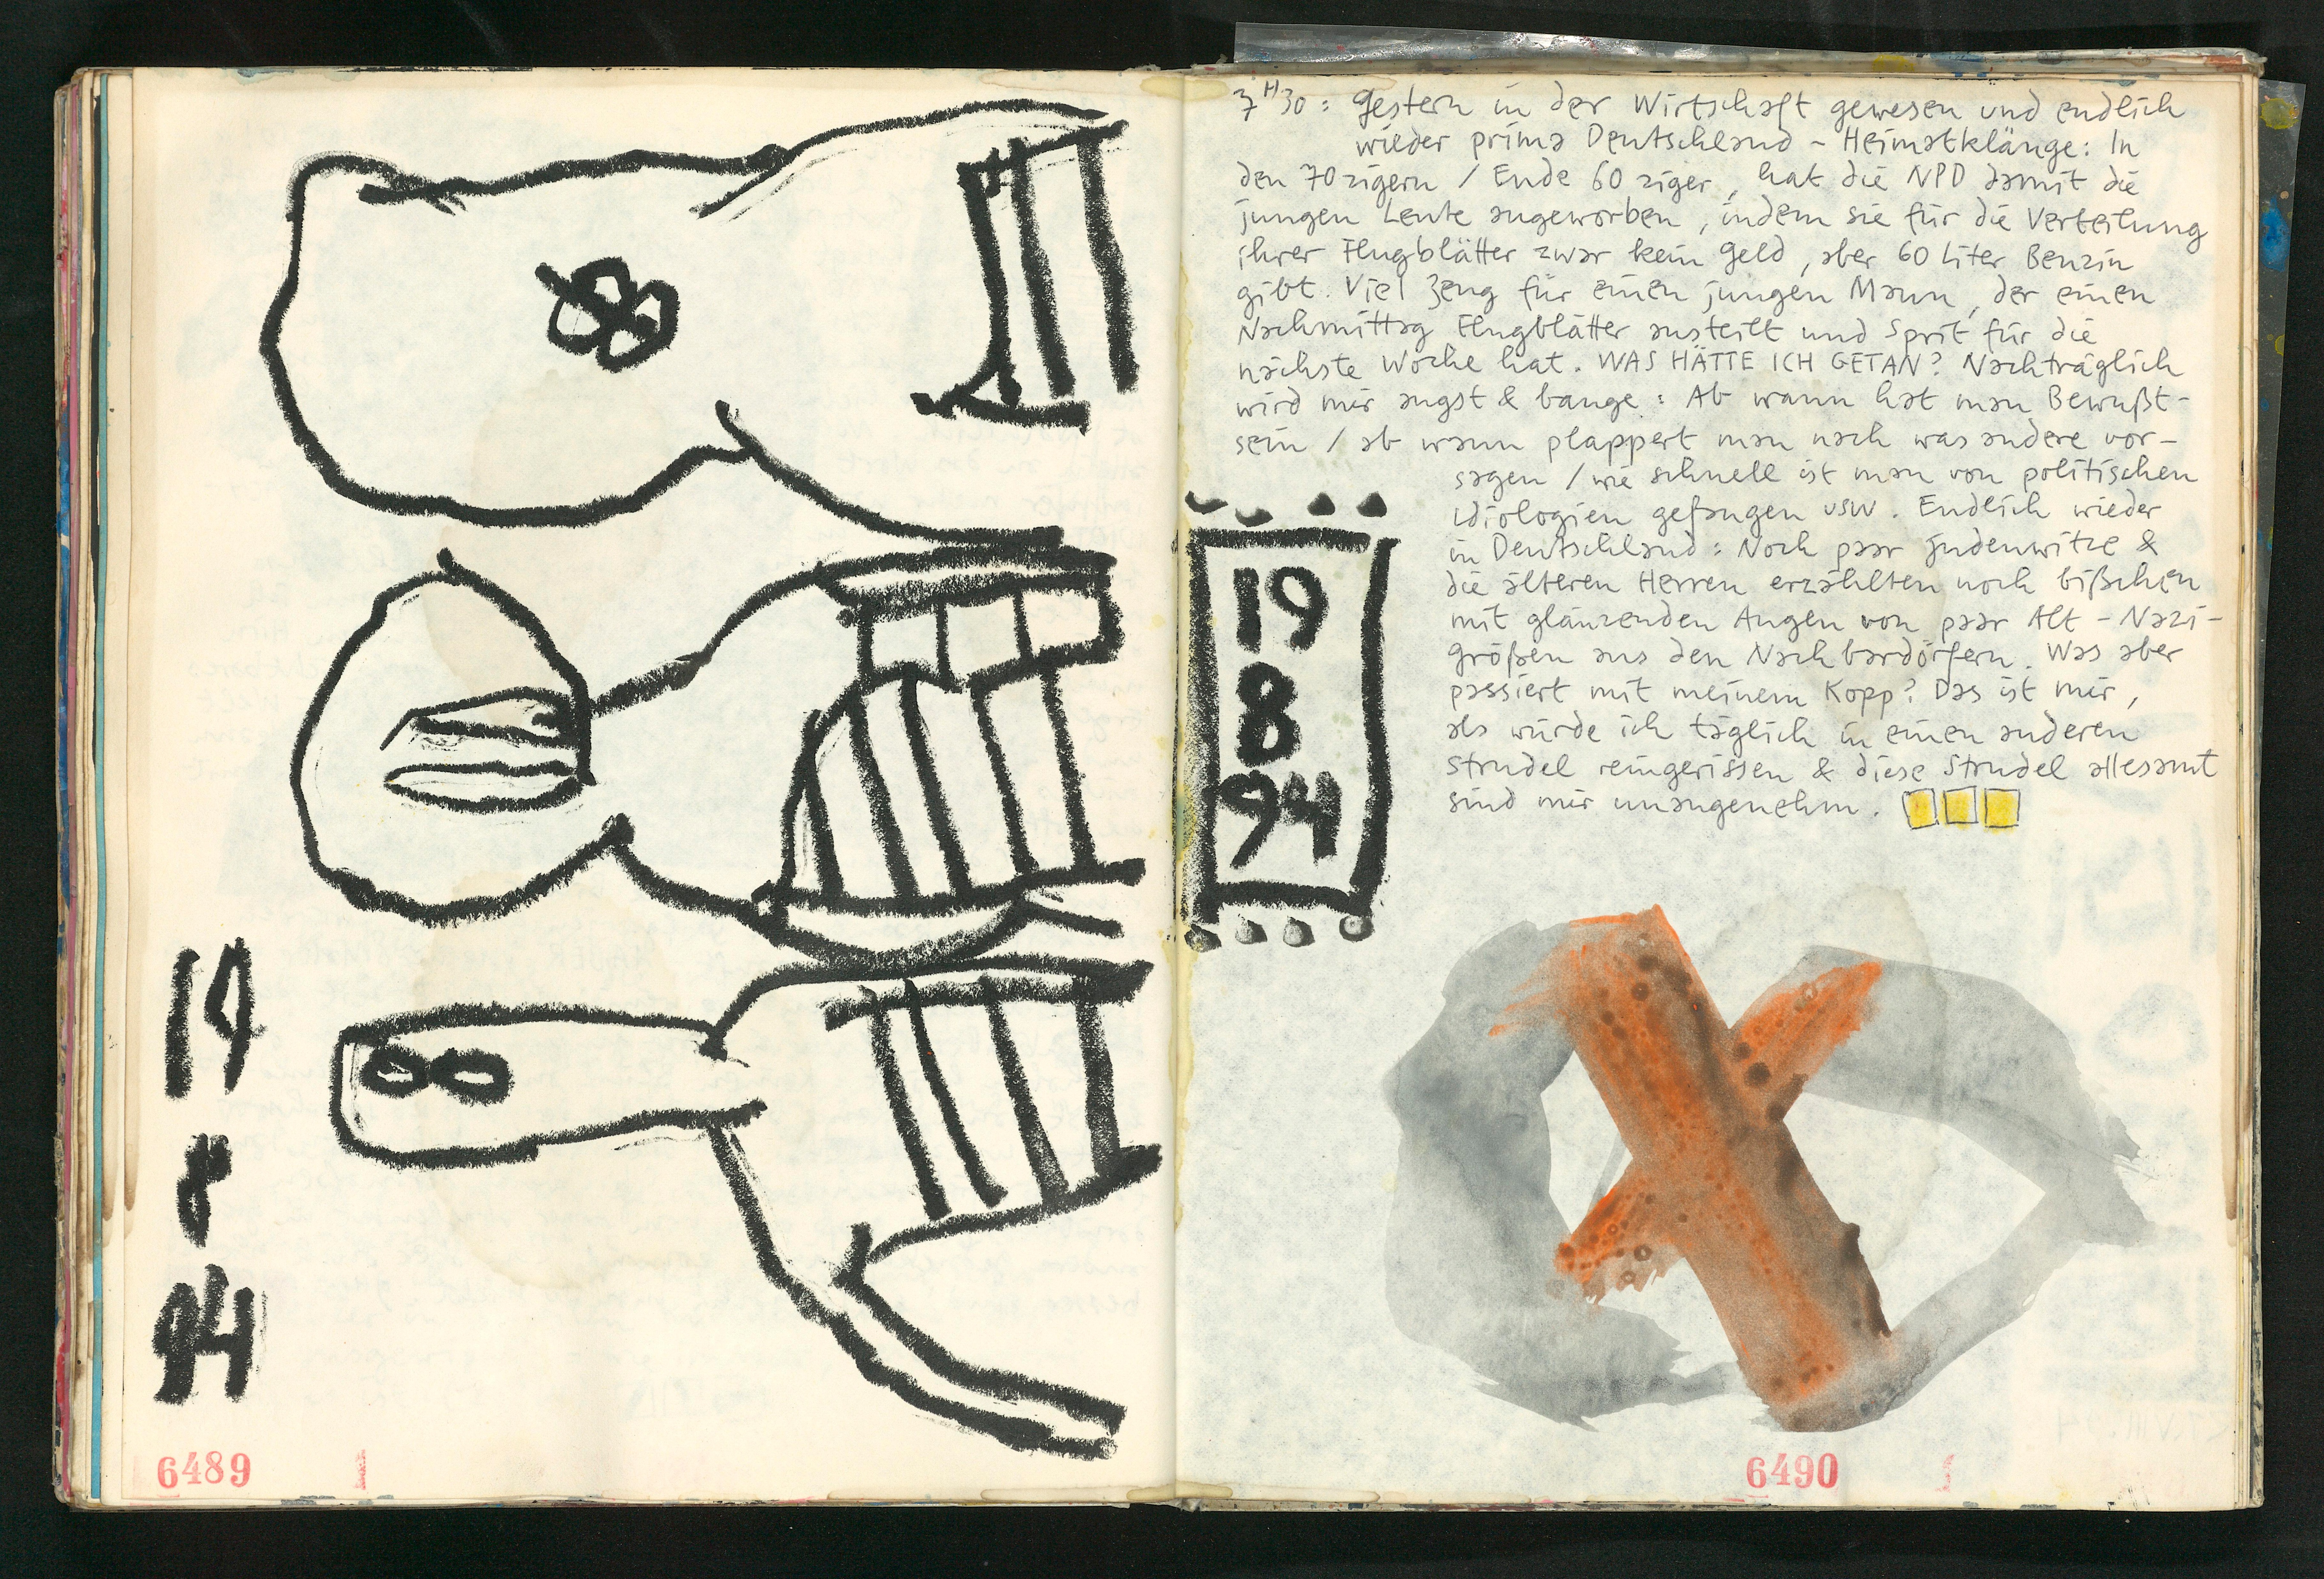 19
8
94
6489
1
7H30: Gestern in der Wirtschaft gewesen und endlich
wieder prima Deutschland - Heimatklänge: In
den 70zigern / Ende 60ziger, hat die NPD damit die
jungen Leute angeworben, indem sie für die Verteilung
ihrer Flugblätter zwar kein Geld, aber 60 Liter Benzin
gibt. Viel Zeug für einen jungen Mann, der einen
Nachmittag Flugblätter austeilt und Sprit für die
nächste Woche hat. WAS HÄTTE ICH GETAN? Nachträglich
wird mir angst & bange: Ab wann hat man Bewußt-
sein / ab wann plappert man nach was andere vor-
sagen / wie schnell ist man von politischen
Idiologien gefangen usw. Endlich wieder
in Deutschland: Noch paar Judenwitze &
die älteren Herren erzählten noch bißchen
mit glänzenden Augen von paar Alt-Nazi-
größen aus den Nachbardörfern. Was aber
passiert mit meinem Kopp? Das ist mir,
als würde ich täglich in einen anderen
Strudel reingerissen & diese Strudel allesamt
sind mir unangenehm.
19
8
94
6490
1